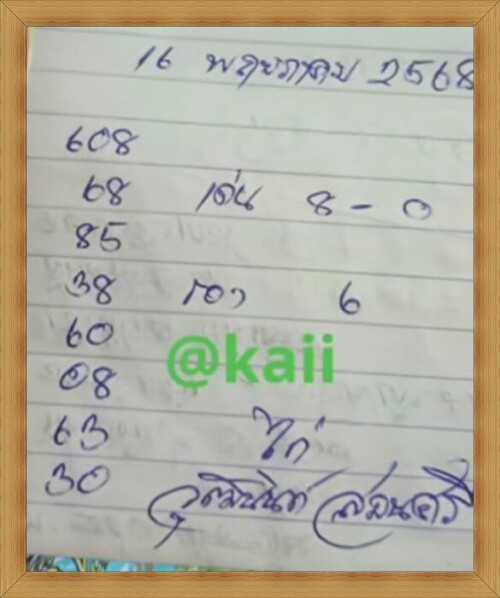 16 พฤษภาคม 2568
608
68 เด่น 8 - 0
85
38 รอง 6
60
@kaii
08
63 ไก่
30